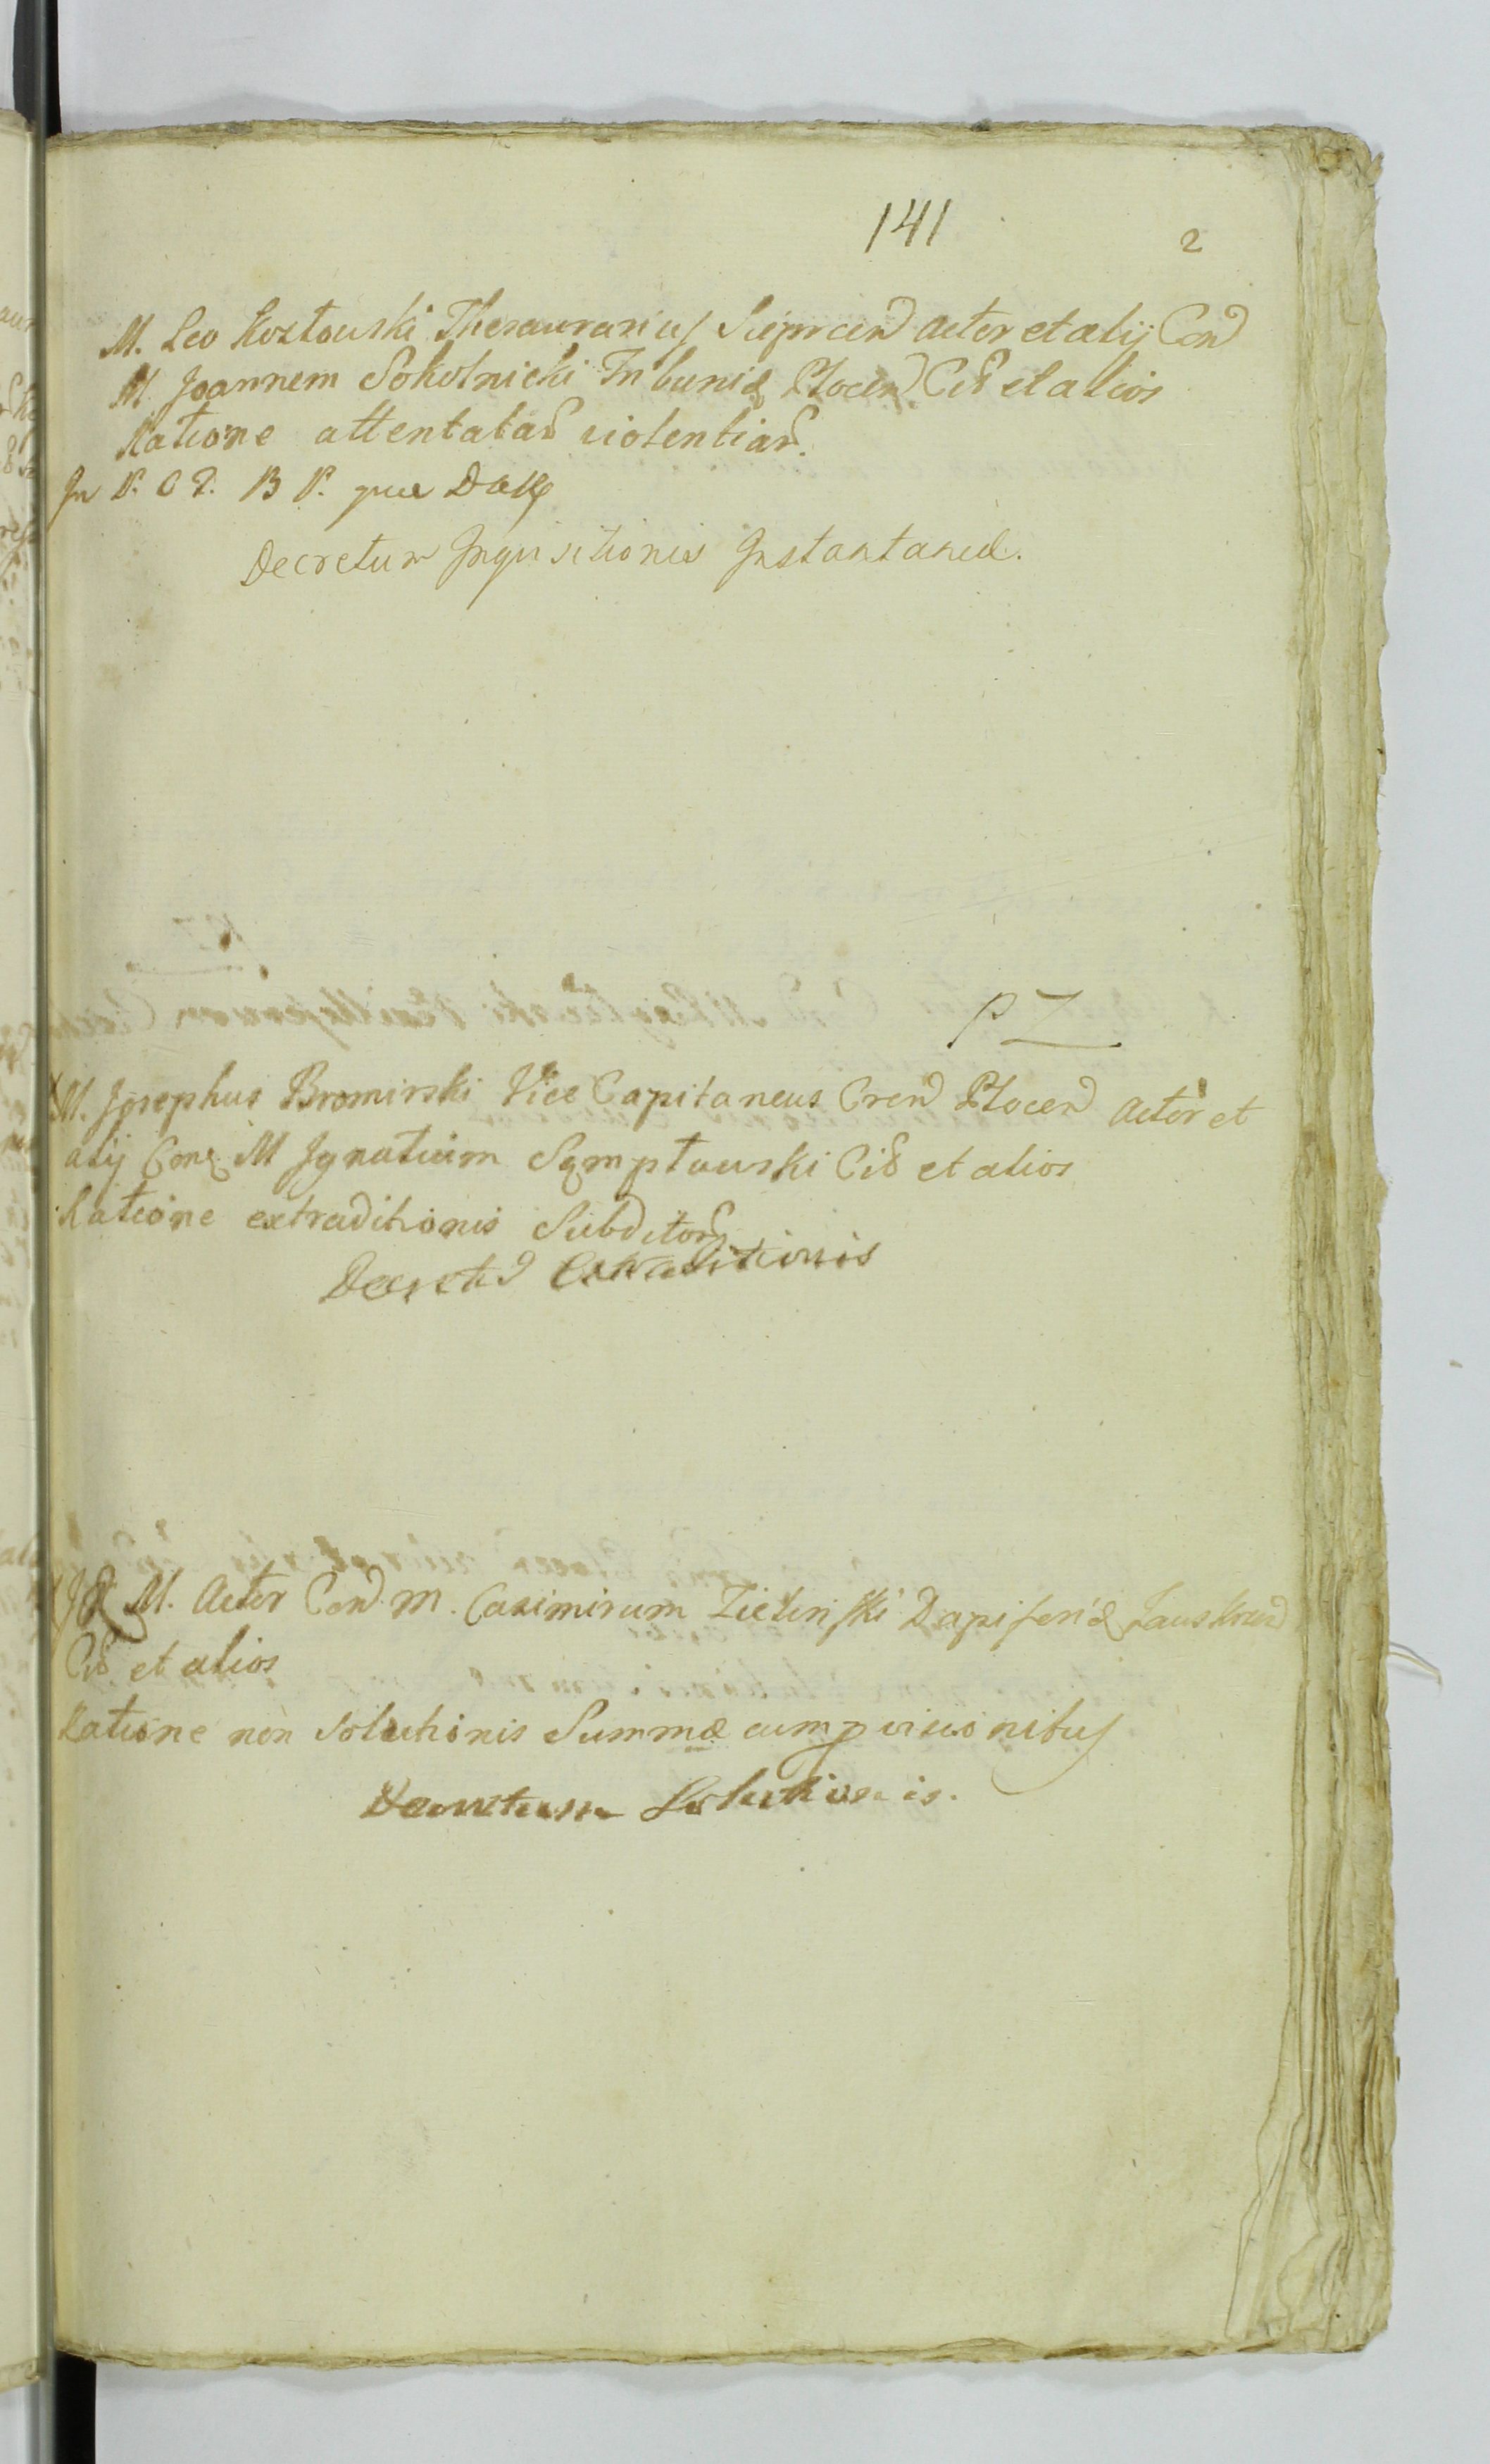 141 2
M. Leo Kozłowski Thesaurarius Sieprcen Actor et alij Con
M. Joannem Sokolnicki Tribuni Plocen Cit et alios
Ratione attentatar violentiar.
In P. O P. B P. qua
Decretum Inquisitionis Instantaneæ.
PZ
M. Josephus Bromirski Vice Capitaneus Cren Plocen Actor et
alij Con M Ignatium Sęmpławski Cit et alios
Ratione extraditionis Subditor
Decretu Extraditionis
M. Actor Con M. Casimirum Zieliński Dapiferi
Cit et alios
Ratione non Solutionis Summæ cum provisionibus
Decretum Solutionis.